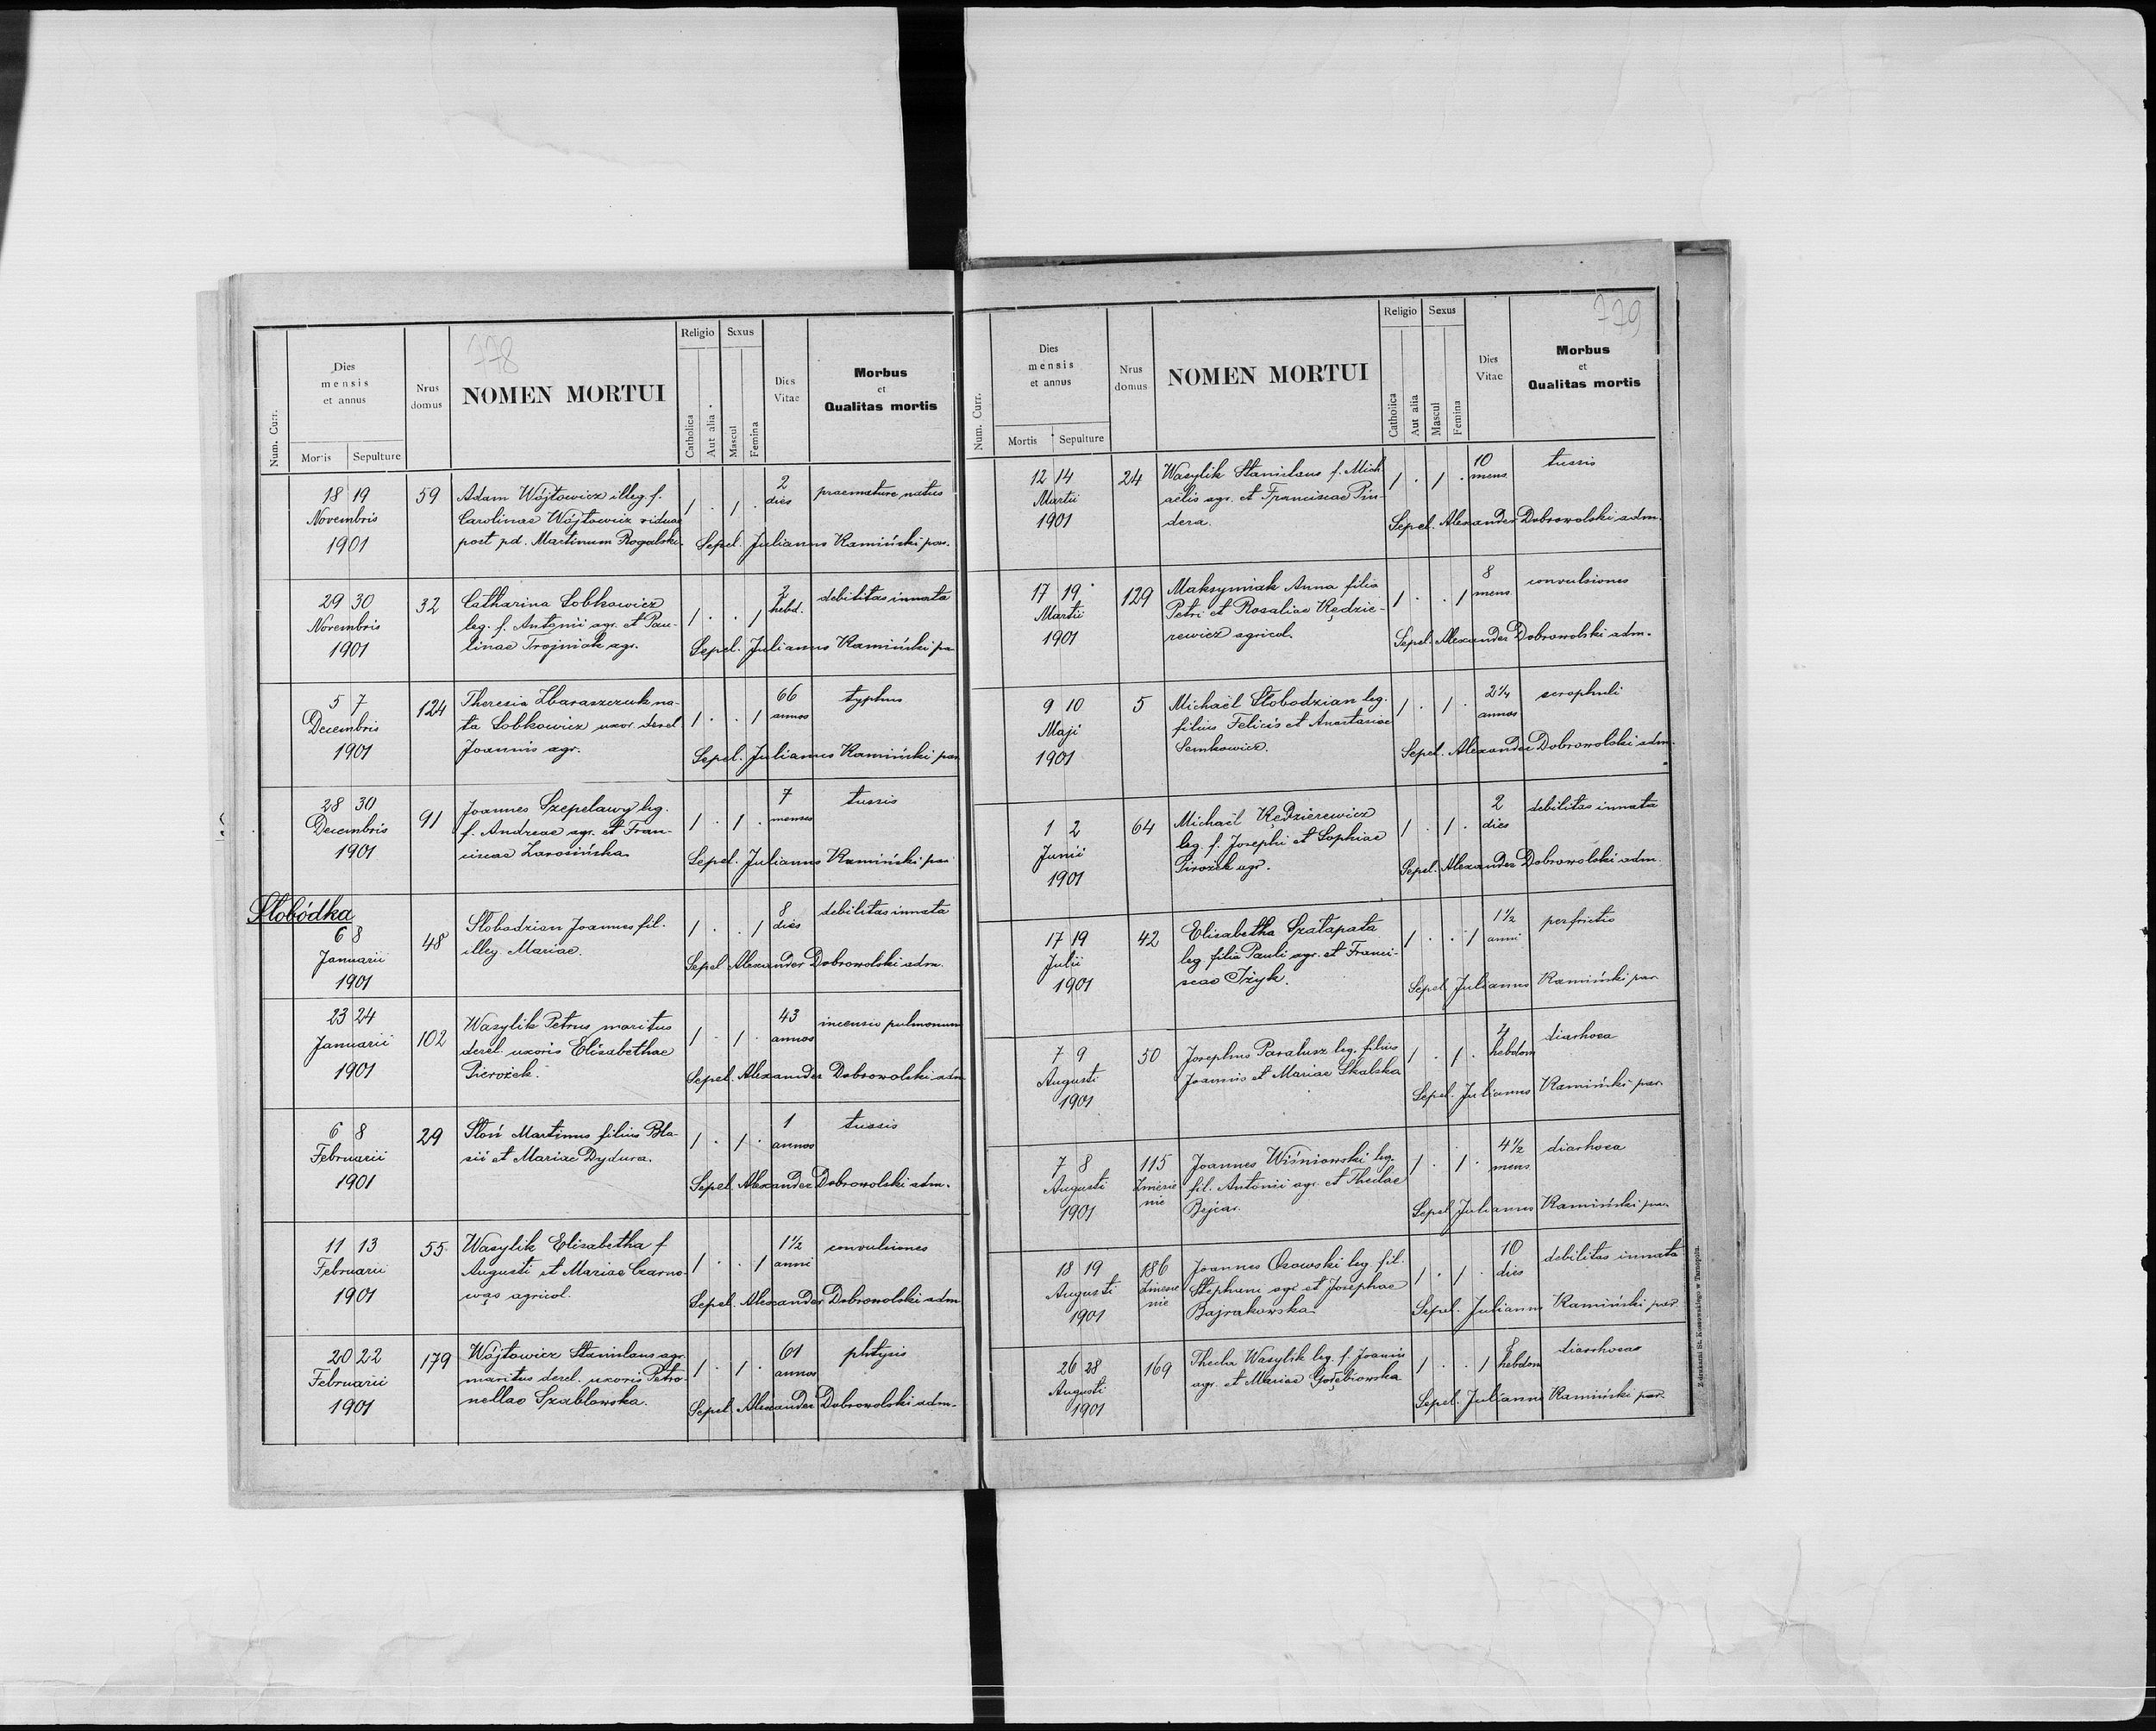 778
Num. Curr.
Dies
mensis
et annus
Mortis Sepulture
Nrus
domus
NOMEN MORTUI
Religio
Catholica
Aut alia
Sexus
Mascul
Femina
Dies
Vitae
Morbus
et
Qualitas mortis
18 19
Novembris
1901
59
Adam Wójtowicz illeg. f.
Carolinae Wójtowicz viduae
post pd. Martinum Rogalski.
1 . 1 .
2
dies
praemature natus
Sepel. Julianus Kamiński par.
29 30
Novembris
1901
32
Catharina Sobkowicz
leg. f. Antonii agr. et Pau-
linae Trojniak agr.
1 . . 1
2
hebd.
debilitas innata
Sepel. Julianus Kamiński pa
5 7
Decembris
1901
124
Theresia Zbaraszczuk na-
ta Sobkowicz uxor derel
Joannis agr.
1 . . 1
66
annos
typhus
Sepel. Julianus Kamiński par.
28 30
Decembris
1901
91
Joannes Szepelawy leg.
f. Andreae agr. et Fran-
ciscae Zarosińska
1 . 1 .
7
menses
tussis
Sepel. Julianus Kamiński par
Słobódka
6 8
Januarii
1901
48
Słobodzian Joannes fil.
illeg. Mariae.
1 . . 1
8
dies
debilitas innata
Sepel Alexander Dobrowolski adm.
23 24
Januarii
1901
102
Wasylik Petrus maritus
derel. uxoris Elisabethae
Pierożek.
1 . 1 .
43
annos
incensio pulmonum
Sepel. Alexander Dobrowolski adm
6 8
Februarii
1901
29
Słoń Martinus filius Bla-
sii et Mariae Dydura.
1 . 1 .
1
annos
tussis
Sepel. Alexander Dobrowolski adm.
11 13
Februarii
1901
55
Wasylik Elisabetha f
Augusti et Mariae Czarno
wąs agricol.
1 . . 1
1½
anni
convulsiones
Sepel. Alexander Dobrowolski adm
20 22
Februarii
1901
179
Wójtowicz Stanislaus agr.
maritus derel. uxoris Petro
nellae Szablowska.
1 . 1 .
61
annos
phtysis
Sepel. Alexander Dobrowolski adm.
779
Num. Curr.
Dies
mensis
et annus
Mortis Sepulture
Nrus
domus
NOMEN MORTUI
Religio
Catholica
Aut alia
Sexus
Mascul
Femina
Dies
Vitae
Morbus
et
Qualitas mortis
12 14
Martii
1901
24
Wasylik Stanislaus f. Mich
aëlis agr. et Franciscae Pin-
dera.
1 . 1 .
10
mens.
tussis
Sepel. Alexander Dobrowolski adm.
17 19
Martii
1901
129
Maksymiak Anna filia
Petri et Rosaliae Kędzie-
rewicz agricol.
1 . . 1
8
mens.
convulsiones
Sepel. Alexander Dobrowolski adm.
9 10
Maji
1901
5
Michaël Słobodzian leg.
filius Felicis et Anastasiae
Semkowicz.
1 . 1 .
2¼
annos
scrophuli
Sepel. Alexander Dobrowolski adm.
1 2
Junii
1901
64
Michaël Kędzierewicz
leg. f. Josephi et Sophiae
Pirożek agr.
1 . 1 .
2
dies
debilitas innata
Sepel. Alexander Dobrowolski adm.
17 19
Julii
1901
42
Elisabetha Szatapata
leg. filia Pauli agr. et Franci-
scae Iżyk.
1 . . 1
1½
anni
perfrictio
Sepel. Julianus Kamiński par.
7 9
Augusti
1901
50
Josephus Paralusz leg. filius
Joannis et Mariae Skalska
1 . 1 .
4
hebdom
diarhoea
Sepel. Julianus Kamiński par.
7 8
Augusti
1901
115
Zniesie
nie
Joannes Wiśniowski leg.
fil. Antonii agr. et Theclae
1 . 1 .
4½
mens
diarhoea
Sepel Julianus Kamiński par.
18 19
Augusti
1901
186
Zniesie
nie
Joannes Osowski leg. fil.
Stephani agr. et Josephae
Bajrakowska
1 . 1 .
10
dies
debilitas innata
Sepel. Julianus Kamiński par
26 28
Augusti
1901
169
Thecla Wasylik leg. f. Joannis
agr. et Mariae Gołębiowska
1 . . 1
8
hebdom
diarrhoeae
Sepel. Julianus Kamiński par.
Z drukarni St. Kossowskiego w Tarnopolu.